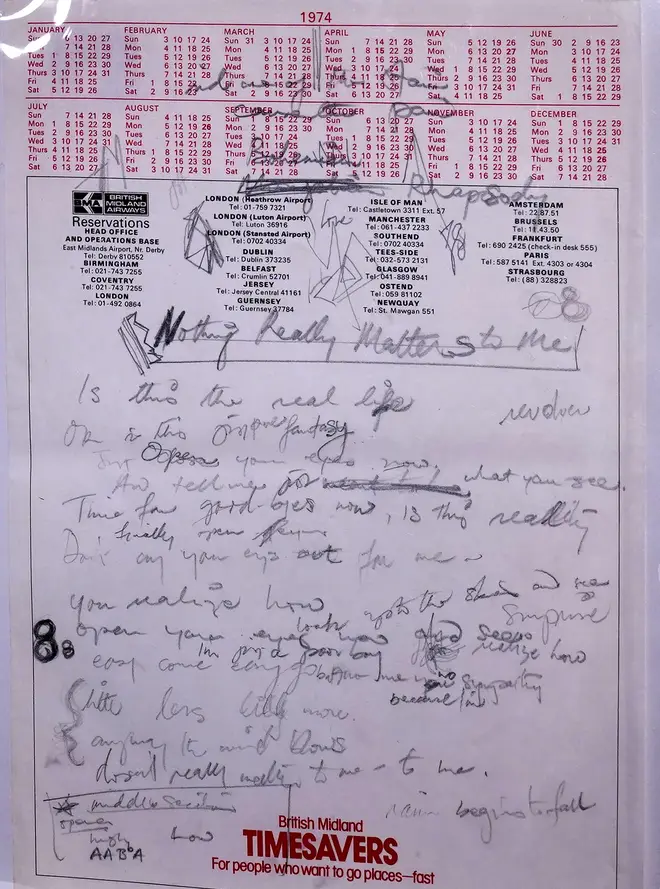 1974
JANUARY
Sun 6 13 20 27
7 14 21 28
Tues 1 8 15 22 29
Wed 2 9 16 23 30
Thurs 3 10 17 24 31
Fri 4 11 18 25
Sat 5 12 19 26
FEBRUARY
Sun 3 10 17 24
Mon 4 11 18 25
Tues 5 12 19 26
Wed 6 13 20 27
Thurs 7 14 21 28
Fri 1 8 15 22
Sat 2 9 16 23
MARCH
Sun 31 3 10 17 24
Mon 4 11 18 25
Tues 5 12 19 26
Wed 6 13 20 27
Thurs 7 14 21 28
Fri 1 8 15 22 29
Sat 2 9 16 23 30
APRIL
Sun 7 14 21 28
Mon 1 8 15 22 29
Tues 2 9 16 23 30
Wed 3 10 17 24
Thurs 4 11 18 25
Fri 5 12 19 26
Sat 6 13 20 27
MAY
Sun 5 12 19 26
Mon 6 13 20 27
Tues 7 14 21 28
Wed 1 8 15 22 29
Thurs 2 9 16 23 30
Fri 3 10 17 24 31
4 11 18 25
JUNE
Sun 30 2 9 16 23
Mon 3 10 17 24
Tues 4 11 18 25
Wed 5 12 19 26
Thurs 6 13 20 27
Fri 7 14 21 28
Sat 1 8 15 22 29
JULY
Sun 7 14 21 28
Mon 1 8 15 22 29
Tues 2 9 16 23 30
Wed 3 10 17 24 31
Thurs 4 11 18 25
Fri 5 12 19 26
Sat 6 13 20 27
AUGUST
Sun 4 11 18 25
Mon 5 12 19 26
Tues 6 13 20 27
Wed 7 14 21 28
Thurs 1 8 15 22 29
Fri 2 9 16 23 30
Sat 3 10 17 24 31
SEPTEMBER
Sun 1 8 15 22 29
Mon 2 9 16 23 30
Tues 3 10 17 24
Wed 4 11 18 25
Thurs 5 12 19 26
Fri 6 13 20 27
Sat 7 14 21 28
OCTOBER
Sun 6 13 20 27
Mon 7 14 21 28
Tues 1 8 15 22 29
Wed 2 9 16 23 30
Thurs 3 10 17 24 31
Fri 4 11 18 25
Sat 5 12 19 26
NOVEMBER
Sun 3 10 17 24
Mon 4 11 18 25
Tues 5 12 19 26
Wed 6 13 20 27
Thurs 7 14 21 28
Fri 1 8 15 22 29
Sat 2 9 16 23 30
DECEMBER
Sun 1 8 15 22 29
Mon 2 9 16 23 30
Tues 3 10 17 24 31
Wed 4 11 18 25
Thurs 5 12 19 26
Fri 6 13 20 27
Sat 7 14 21 28
Rhapsody
BMA BRITISH MIDLAND AIRWAYS
Reservations
HEAD OFFICE
AND OPERATIONS BASE
East Midlands Airport, Nr. Derby
Tel: Derby 810552
BIRMINGHAM
Tel: 021-743 7255
COVENTRY
Tel: 021-743 7255
LONDON
Tel: 01-492 0864
LONDON (Heathrow Airport)
Tel: 01-759 7321
LONDON (Luton Airport)
Tel: Luton 36916
LONDON (Stansted Airport)
Tel: 0702 40334
DUBLIN
Tel: Dublin 373235
BELFAST
Tel: Crumlin 52701
JERSEY
Tel: Jersey Central 41161
GUERNSEY
Tel: Guernsey 37784
love
ISLE OF MAN
Tel: Castletown 3311 Ext. 57
MANCHESTER
Tel: 061-437 2233
SOUTHEND
Tel: 0702 40334
TEES-SIDE
Tel: 032-573 2131
GLASGOW
Tel: 041-889 8941
OSTEND
Tel: 059 81102
NEWQUAY
Tel: St. Mawgan 551
AMSTERDAM
Tel: 22.87.51
BRUSSELS
Tel: 18.43.50
FRANKFURT
Tel: 690 2425 (check-in desk 555)
PARIS
Tel: 587 5141 Ext. 4303 or 4304
STRASBOURG
Tel: (88) 328823
Nothing Really Matters to Me
Is this the real life
revolver
Or is this just pure fantasy
Just Open your eyes now,
And tell me what you see.
Time for good-byes now, Is this reality
finally open
Don't cry your eyes out for me
You realize how
look up to the skies and see
open your eyes now
surprise
realize how
I'm just a poor boy
easy come easy go
me no sympathy
because I'm
little less little more.
anyway the wind blows
doesn't really matter to me - to me.
middle section
opera
high low
AABbA
rain begins to fall
British Midland
TIMESAVERS
For people who want to go places—fast